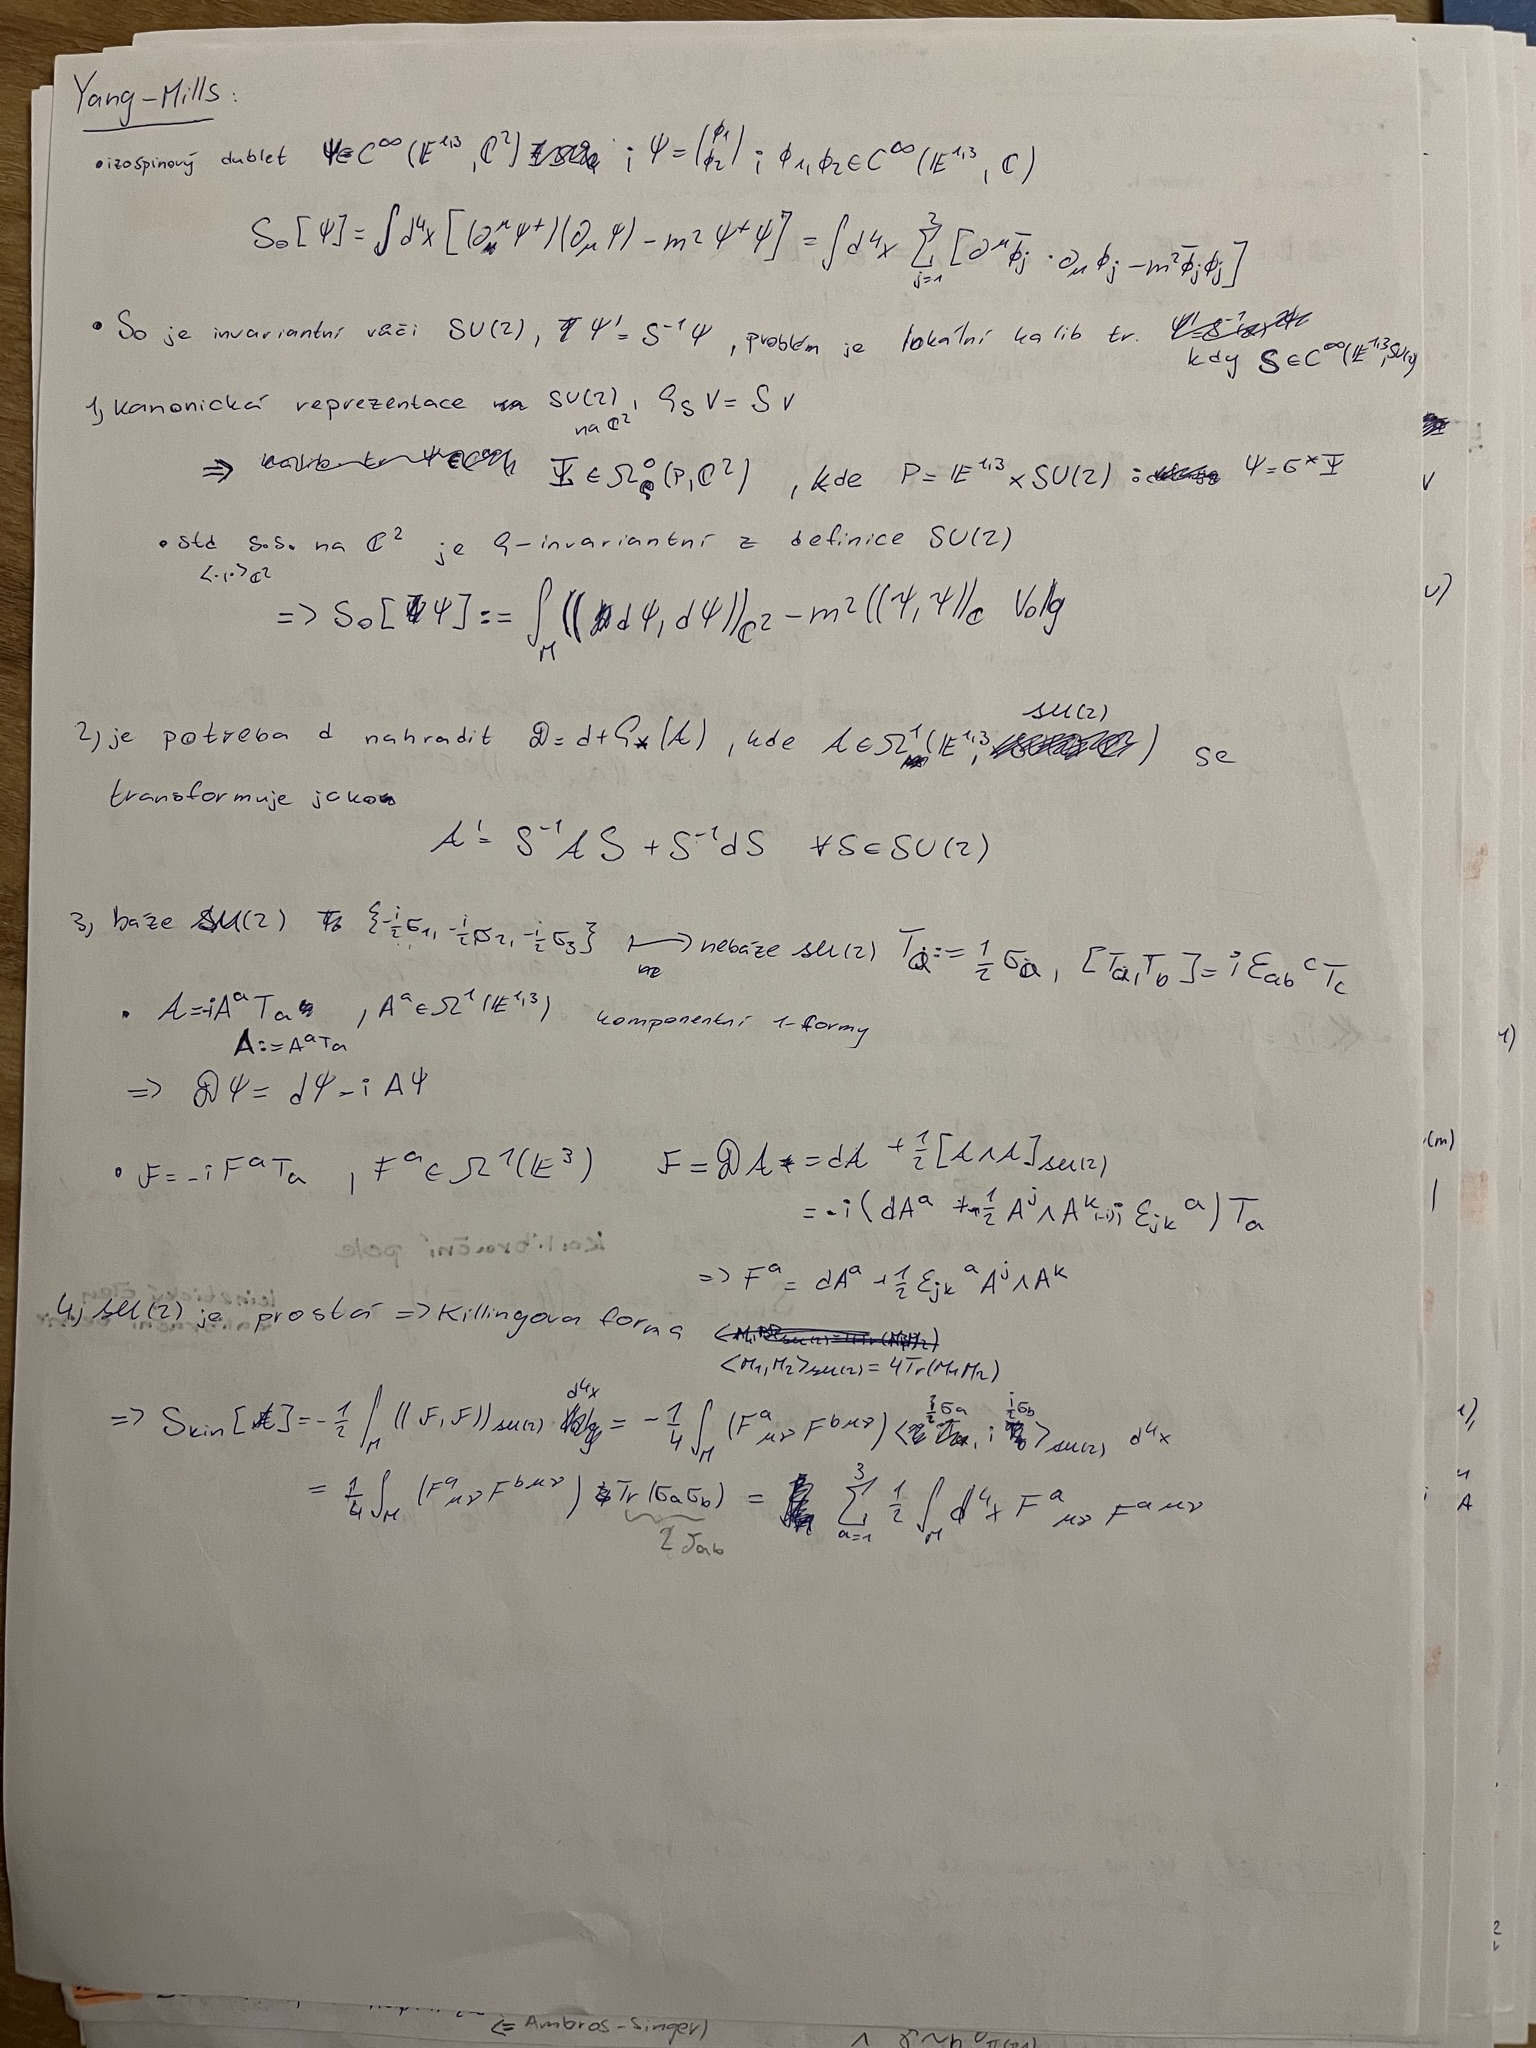 Yang-Mills:
• izospinový dublet Ψ∈C^∞(E^{1,3}, ℂ²) ; Ψ=(ϕ1 ϕ2) ; ϕ1, ϕ2 ∈ C^∞(E^{1,3}, ℂ)
S₀[Ψ] = ∫d⁴x [(∂^μ Ψ⁺)(∂_μ Ψ) − m² Ψ⁺Ψ] = ∫d⁴x Σ_{j=1}^{2} [∂^μ ϕ̄_j · ∂_μ ϕ_j − m² ϕ̄_j ϕ_j]
• S₀ je invariantní vůči SU(2), Ψ' = S⁻¹Ψ, problém je lokální kalib tr.
kdy S∈C^∞(E^{1,3}, SU(2))
1, kanonická reprezentace SU(2) na ℂ², ϱ_S v = S v
⇒ Ψ ∈ Ω⁰_ϱ(P, ℂ²), kde P = E^{1,3} × SU(2) : Ψ = σ* Ψ
• std s.s. na ℂ² je ϱ-invariantní z definice SU(2)
<.,.>_{ℂ²}
=> S₀[Ψ] := ∫_M ((dΨ, dΨ))_{ℂ²} − m² ((Ψ, Ψ))_ℂ Vol_g
2, je potřeba d nahradit 𝒟 = d + ϱ_*(𝒜), kde 𝒜 ∈ Ω¹(E^{1,3}, su(2)) se
transformuje jako
𝒜' = S⁻¹ 𝒜 S + S⁻¹dS ∀S∈SU(2)
3, báze su(2) {-i/2 σ₁, -i/2 σ₂, -i/2 σ₃} ⟼ nebáze su(2) T_a := 1/2 σ_a, [T_a, T_b] = i ε_{ab}^c T_c
ne
• 𝒜 = -i A^a T_a, A^a ∈ Ω¹(E^{1,3}) komponentní 1-formy
A := A^a T_a
=> 𝒟Ψ = dΨ − i AΨ
• ℱ = -i F^a T_a, F^a ∈ Ω¹(E³) ℱ = 𝒟𝒜 = d𝒜 + 1/2 [𝒜∧𝒜]_{su(2)}
= -i (dA^a + 1/2 A^j ∧ A^k (-i)i ε_{jk}^a) T_a
=> F^a = dA^a + 1/2 ε_{jk}^a A^j ∧ A^k
4, su(2) je prostá => Killingova forma
<M₁, M₂>_{su(2)} = 4Tr(M₁M₂)
=> S_kin[𝒜] = -1/2 ∫_M ((ℱ, ℱ))_{su(2)} d⁴x = -1/4 ∫_M (F^a_{μν} F^{bμν}) <i/2 σ_a, i/2 σ_b>_{su(2)} d⁴x
= 1/4 ∫_M (F^a_{μν} F^{bμν}) Tr(σ_a σ_b) = Σ_{a=1}^{3} 1/2 ∫_M d⁴x F^a_{μν} F^{aμν}
2 δ_{ab}
(= Ambros-Singer)